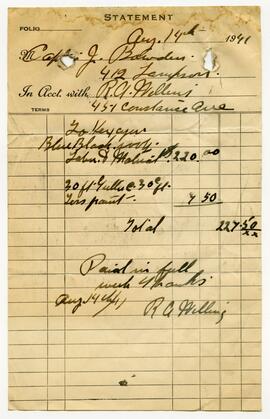 STATEMENT
FOLIO
Aug. 14th 1941
M Capt. J. Bowden
412 Lampson
In Acct. with R. A. Willing
457 Constance Ave
TERMS
Blue Black roof
Labor & Material $220.00
30 ft Gutter @ 30¢ ft.
less paint 7 50
Total 227.50
Paid in full
with thanks
Aug 14th/41
R A Willing